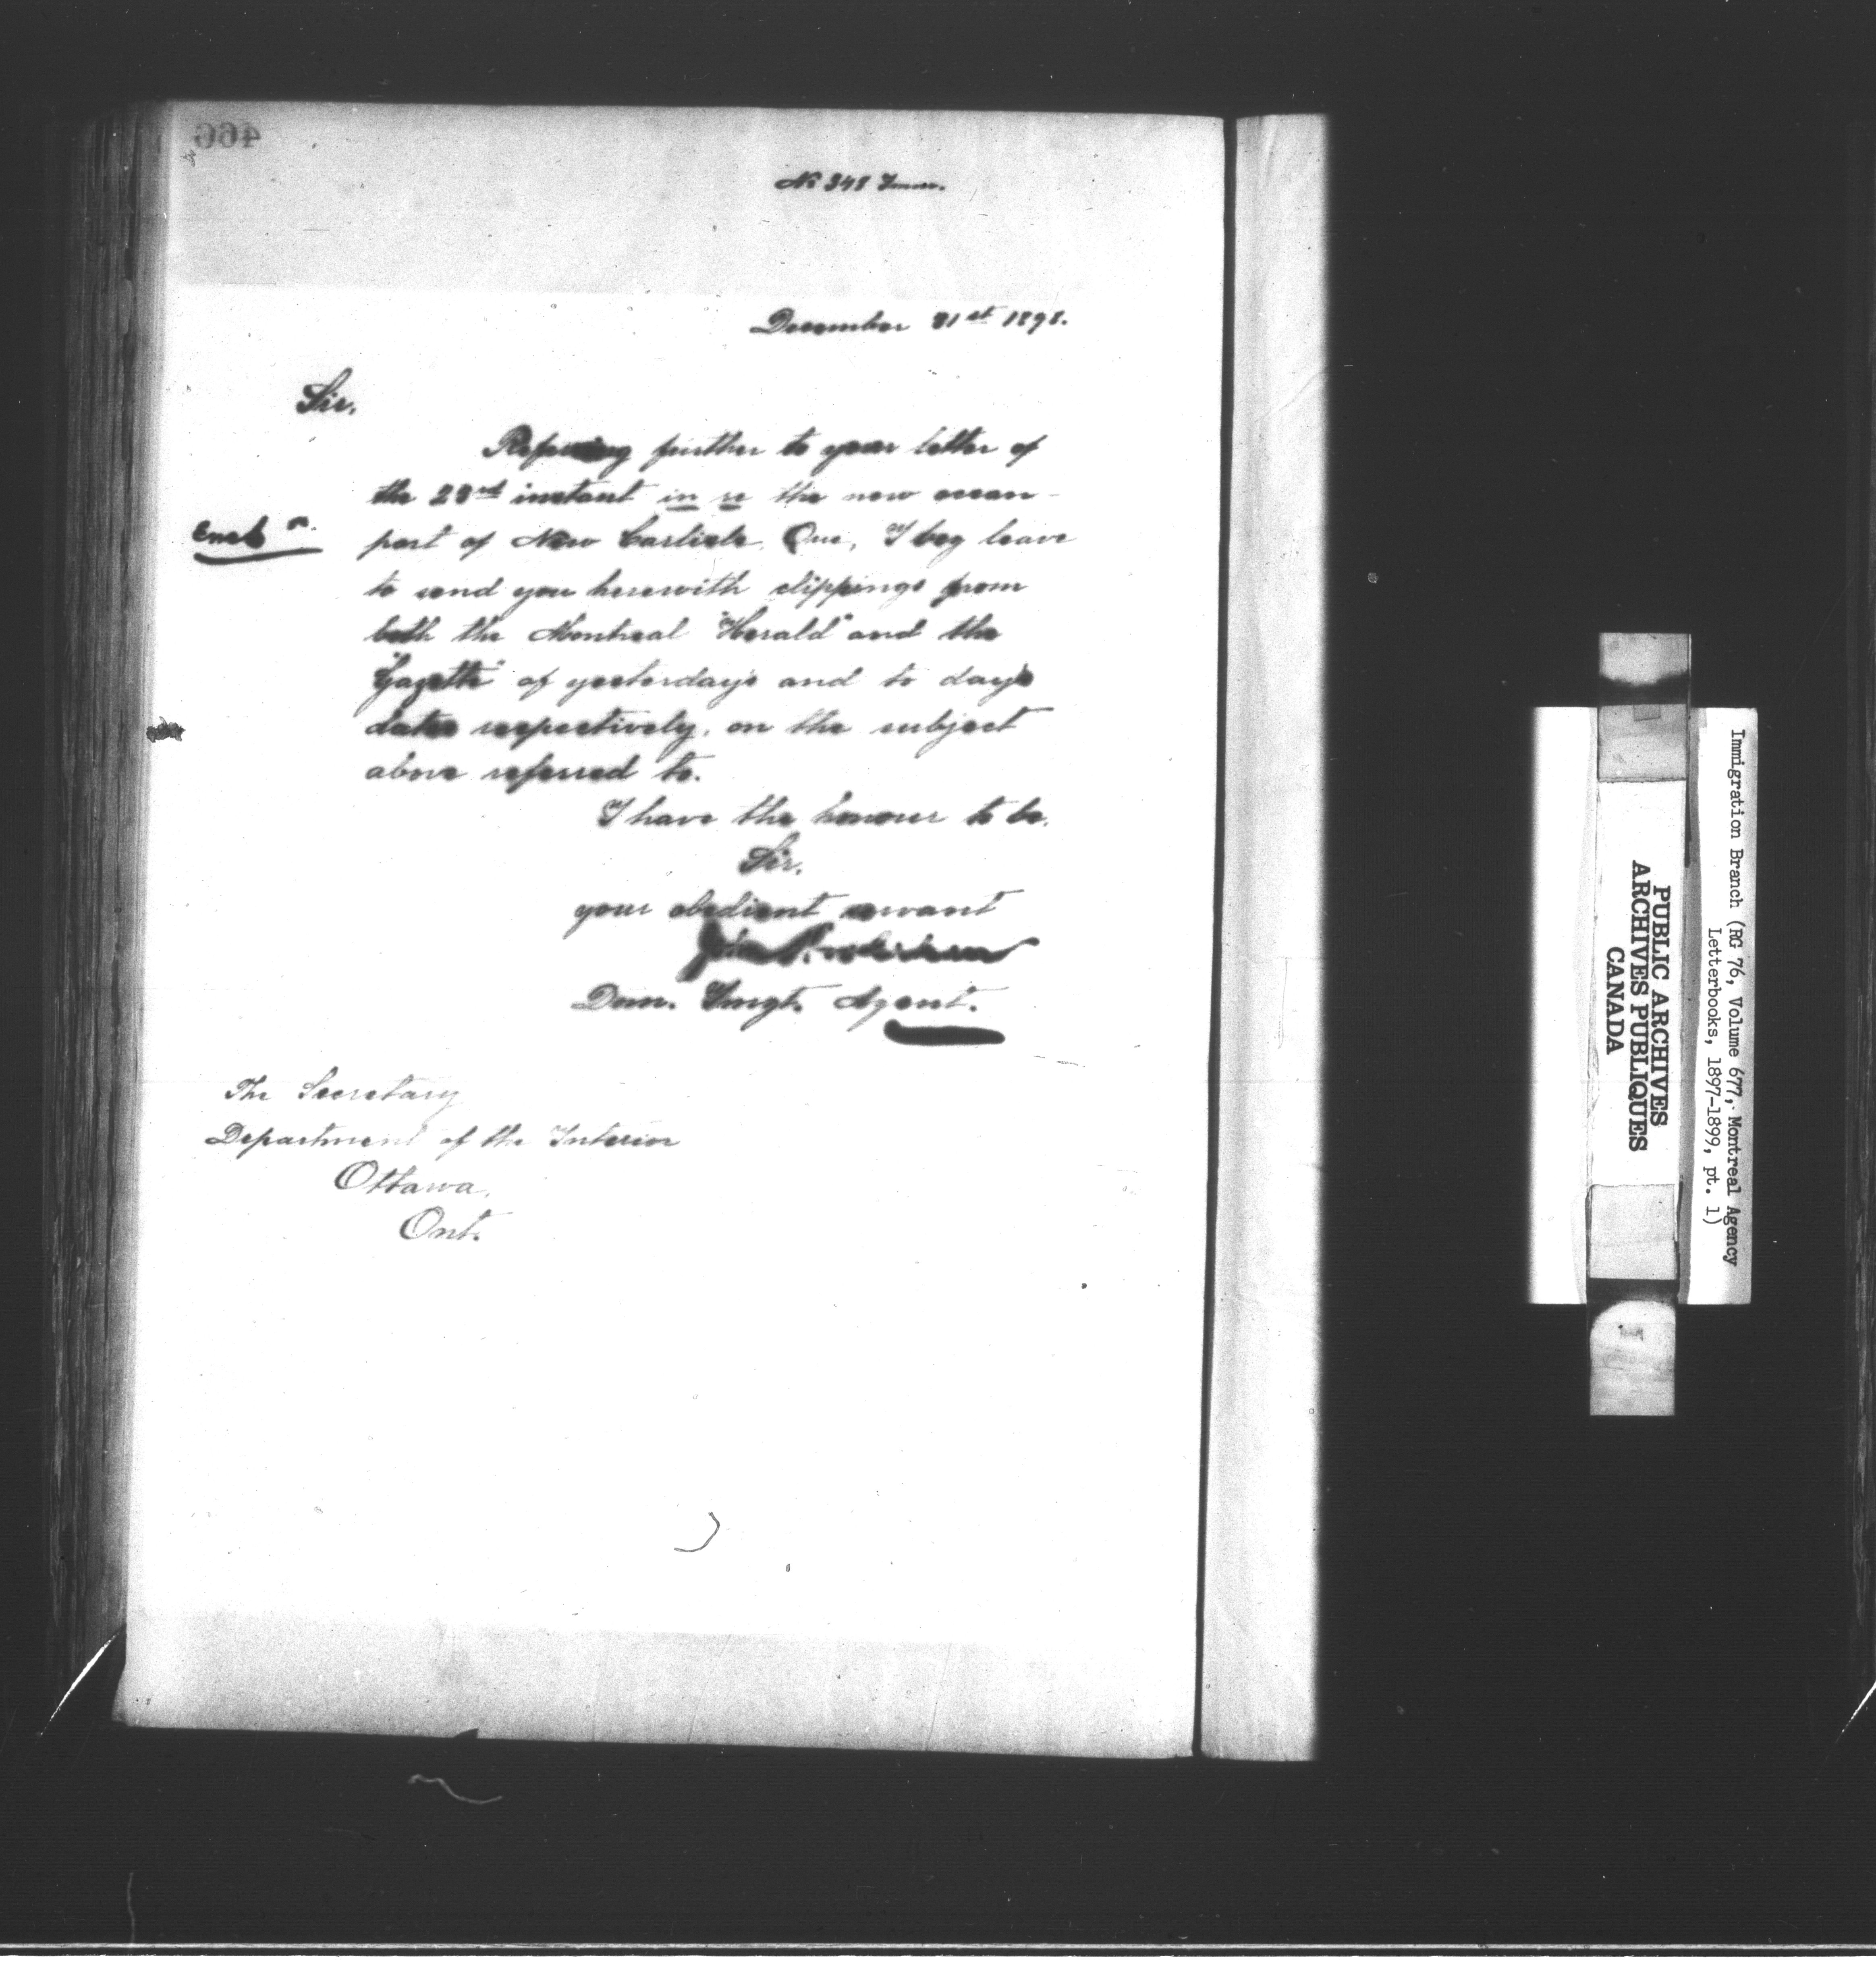 466
No 348 Imm.
December 31st 1898.
Sir,
Referring further to your letter of
the 23rd instant in re the new ocean-
port of New Carlisle, Que, I beg leave
Encl
to send you herewith clippings from
both the Montreal "Herald" and the
"Gazette" of yesterdays and to days
dates respectively, on the subject
above referred to.
I have the honour to be,
Sir,
your obedient servant
John
Dom. Imgt. Agent.
The Secretary
Department of the Interior
Ottawa,
Ont.
PUBLIC ARCHIVES
ARCHIVES PUBLIQUES
CANADA
Immigration Branch (RG 76, Volume 677, Montreal Agency
Letterbooks, 1897-1899, pt. 1)